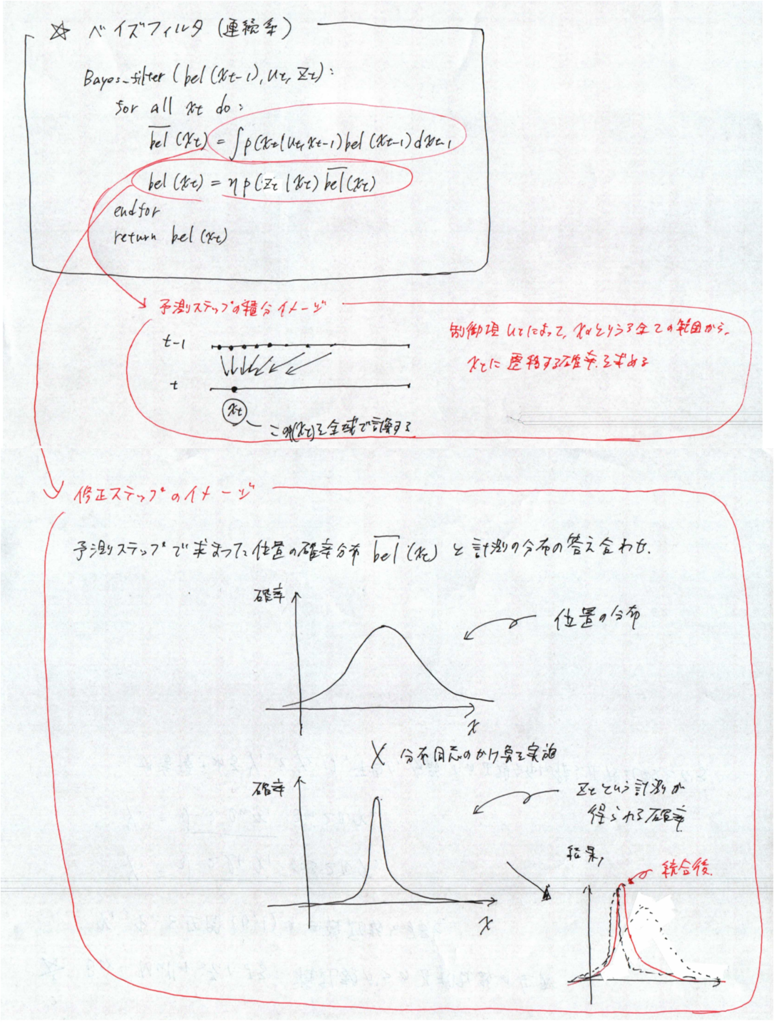 ☆ ベイズフィルタ (連続系)
Bayes_filter (bel(xt-1), ut, zt) :
for all xt do :
b̅e̅l̅(xt) = ∫p(xt|ut, xt-1) bel(xt-1) dxt-1
bel(xt) = η p(zt|xt) b̅e̅l̅(xt)
endfor
return bel(xt)
予測ステップの積分イメージ
t-1
t
xt
制御項 utによって、xがとりうる全ての範囲から、
xtに遷移する確率を求める
この(xt)を全域で計算する
修正ステップのイメージ
予測ステップで求まった位置の確率分布 b̅e̅l̅(xt) と計測の分布の答え合わせ.
確率
位置の分布
x
X 分布同志のかけ算を実施
確率
ztという計測が
得られる確率
x
結果,
統合後.